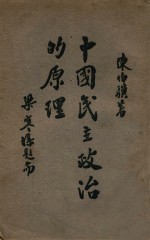 陳著
中國民主政治
的原理
梁寒操題